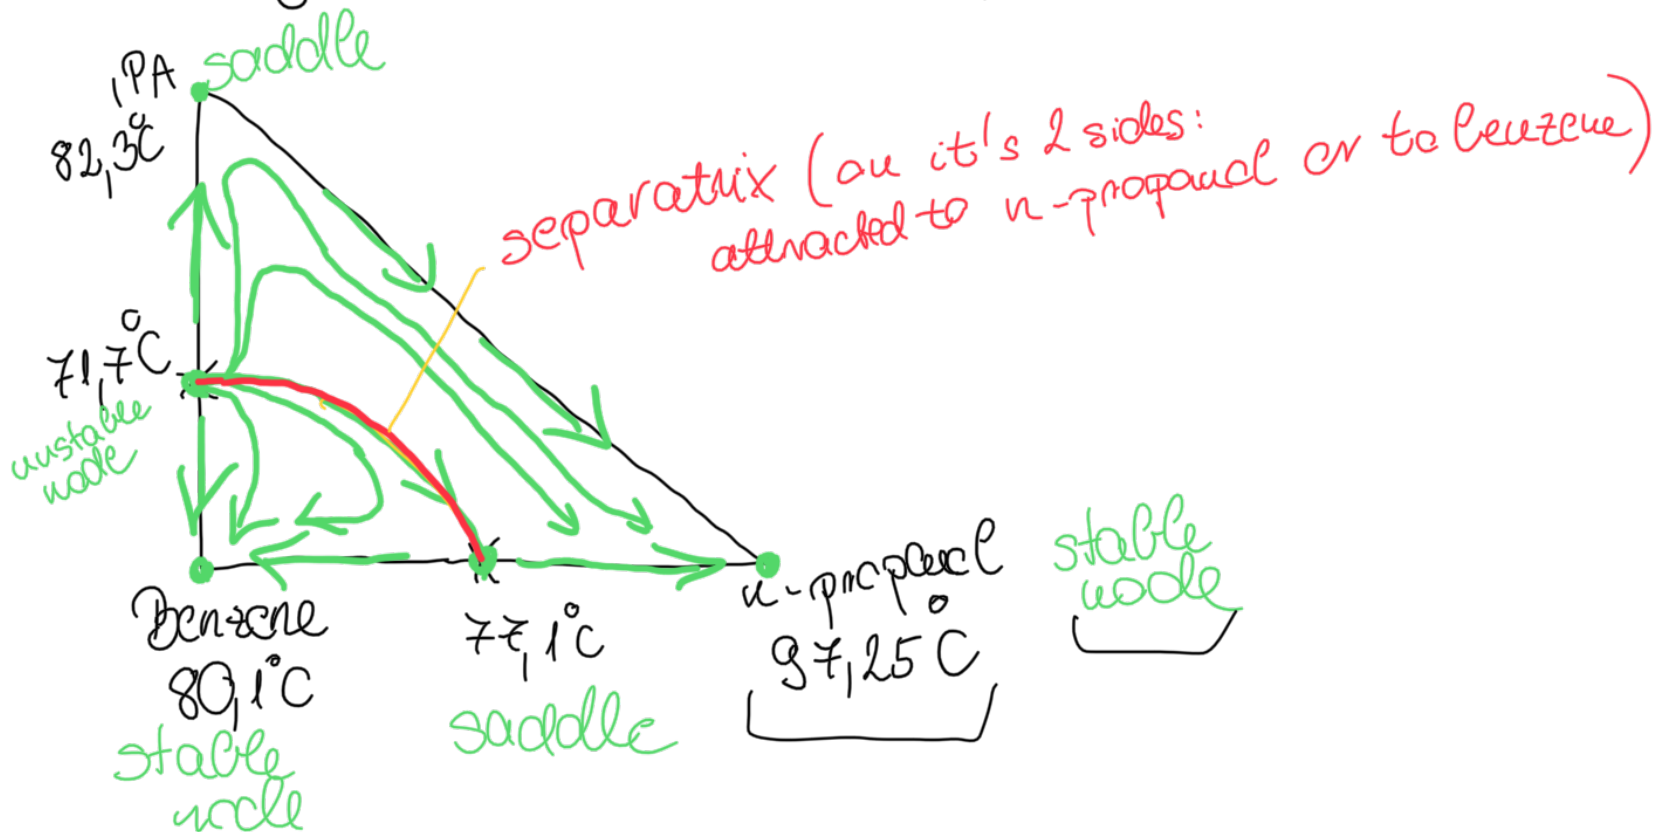 saddle
iPA
82,3°C
separatrix (on it's 2 sides:
attracted to n-propanol or to benzene)
71,7°C
unstable
node
Benzene
80,1°C
stable
node
77,1°C
saddle
n-propanol
97,25°C
stable
node